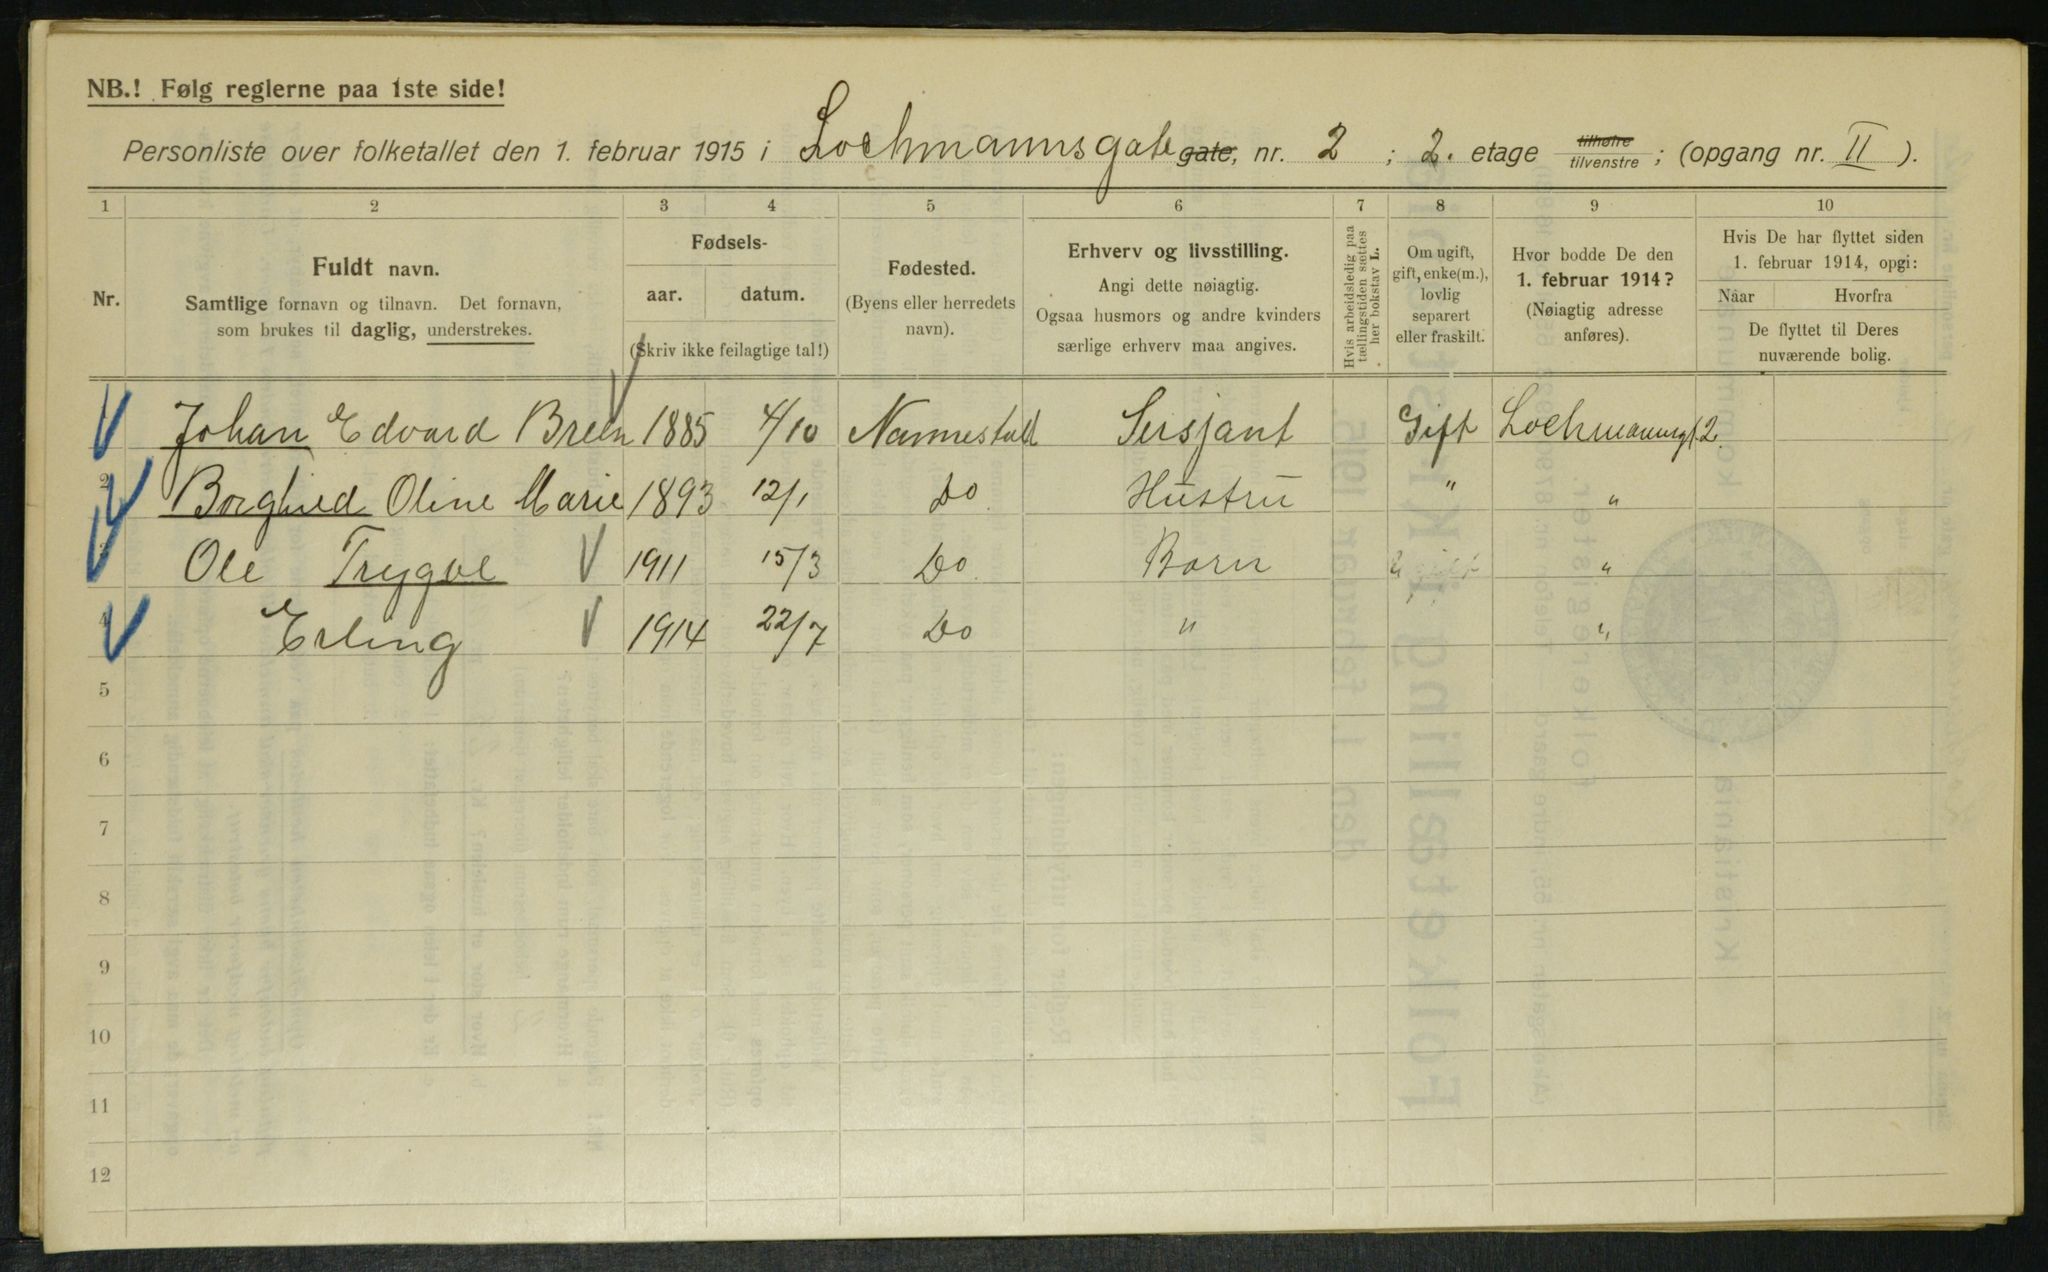 NB.! Følg reglerne paa 1ste side!
Personliste over folketallet den 1. februar 1915 i Lochmannsgate gate, nr. 2 ; 2. etage tilhøire tilvenstre ; (opgang nr. II ).
1 2 3 4 5 6 7 8 9 10
Nr.
Fuldt navn.
Samtlige fornavn og tilnavn. Det fornavn,
som brukes til daglig, understrekes.
Fødsels-
aar. datum.
(Skriv ikke feilagtige tal!)
Fødested.
(Byens eller herredets
navn).
Erhverv og livsstilling.
Angi dette nøiagtig.
Ogsaa husmors og andre kvinders
særlige erhverv maa angives.
Hvis arbeidsledig paa
tællingstiden sættes
her bokstav L.
Om ugift,
gift, enke(m.),
lovlig
separert
eller fraskilt.
Hvor bodde De den
1. februar 1914?
(Nøiagtig adresse
anføres).
Hvis De har flyttet siden
1. februar 1914, opgi:
Naar Hvorfra
De flyttet til Deres
nuværende bolig.
Johan Edvard Breen 1885 4/10 Nannestad Sersjant Gift Lochmannsgt 2.
2 Borghild Oline Marie 1893 12/1 Do Hustru " "
3 Ole Trygve 1911 15/3 Do. Barn Ugift "
4 Erling 1914 22/7 Do " "
5
6
7
8
9
10
11
12